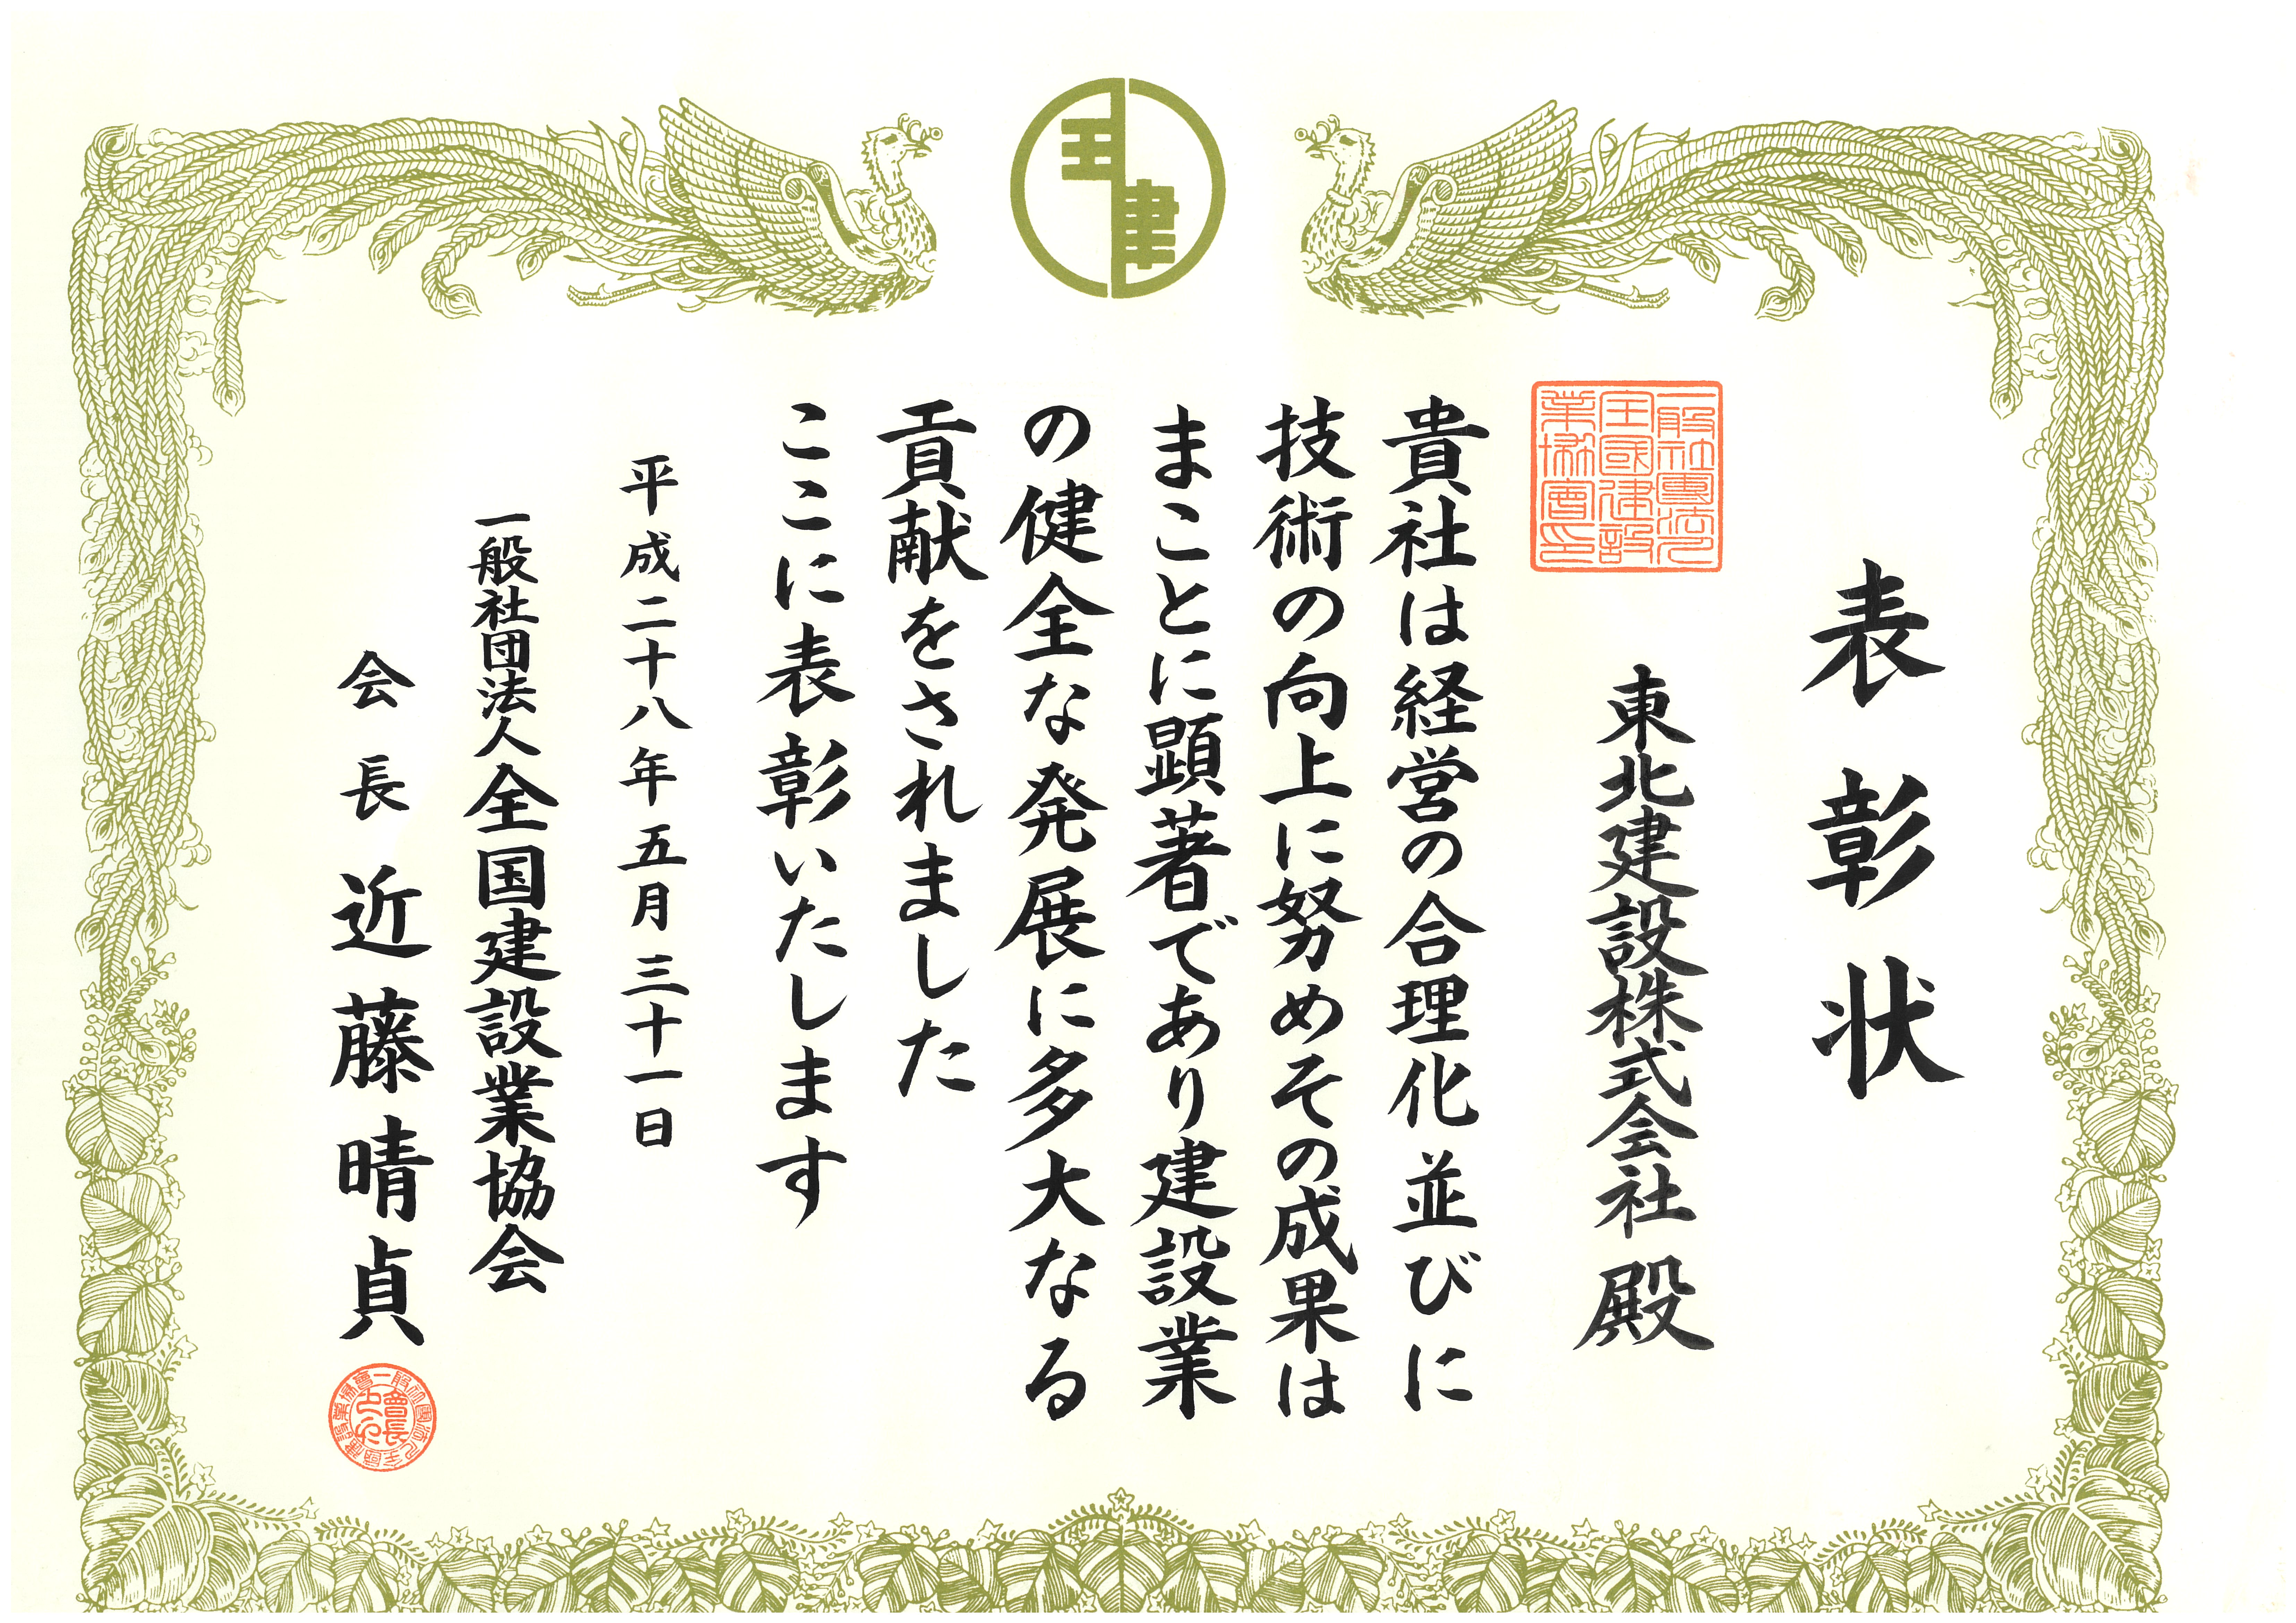 表彰状
東北建設株式会社 殿
一般社團法人
全國建設
業協會印
貴社は経営の合理化並びに
技術の向上に努めその成果は
まことに顕著であり建設業
の健全な発展に多大なる
貢献をされました
ここに表彰いたします
平成二十八年五月三十一日
一般社団法人全国建設業協会
会長 近藤晴貞